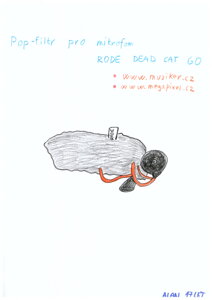 Pop-filtr pro mikrofon
RODE DEAD CAT GO
• www.muziker.cz
• www.megapixel.cz
ALAN 17 LET